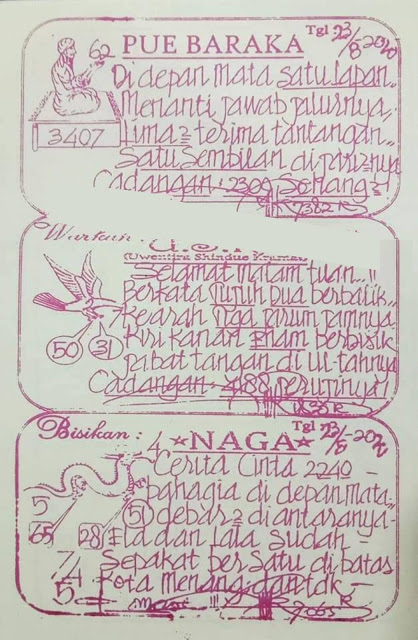 PUE BARAKA
Tgl 23/8-2020
62
3407
Di depan mata satu lapan..
Menanti jawab jalurnya,
Lima2 terima tantangan..
Satu sembilan di
Cadangan: 2309 Senang2
7382 R
Wartun: U.S.
(Uwentira Shindue Kramat)
Selamat malam tuan...!!
Berkata Tujuh Dua berbalik..
Kearah Tiga jarum jamnya.
Kiri kanan Enam berbisik
Jabat tangan di
50 31
Cadangan:
R
Bisikan: 4 ★NAGA★
Tgl 23/8-2020
Cerita Cinta 2240 -
bahagia di depan mata..
debar2 di antaranya-
Ela dan Lala sudah -
Sepakat bersatu di batas
Kota Menang dan tak -
5
65
28
51
74
5
!!! 9065 R